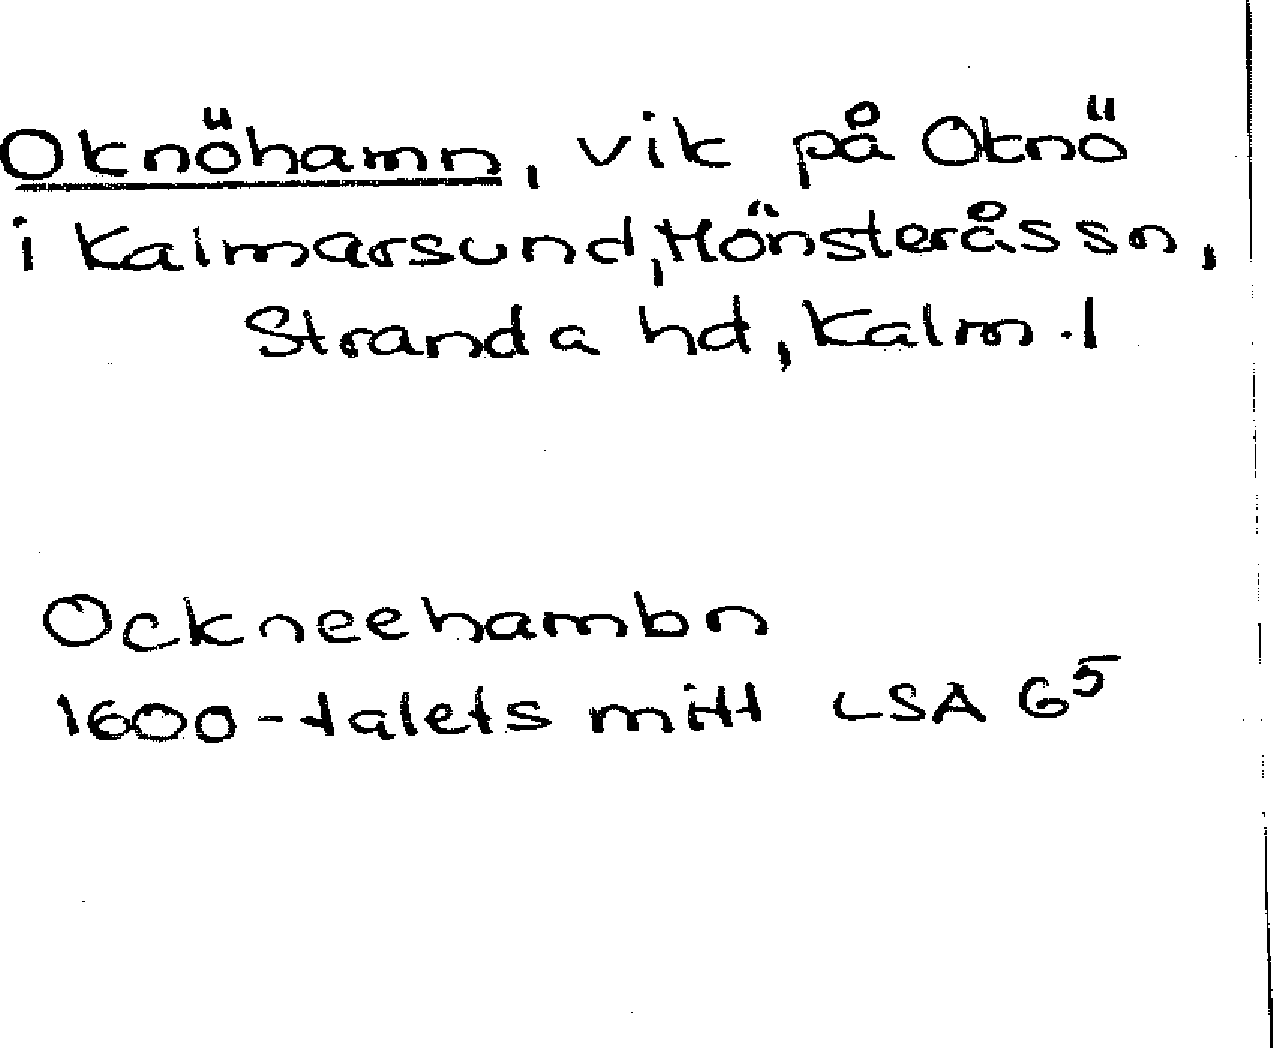 Oknöhamn, vik på Oknö
i Kalmarsund, Mönsterås sn,
Stranda hd, Kalm. l
Ockneehambn
1600-talets mitt LSA G5